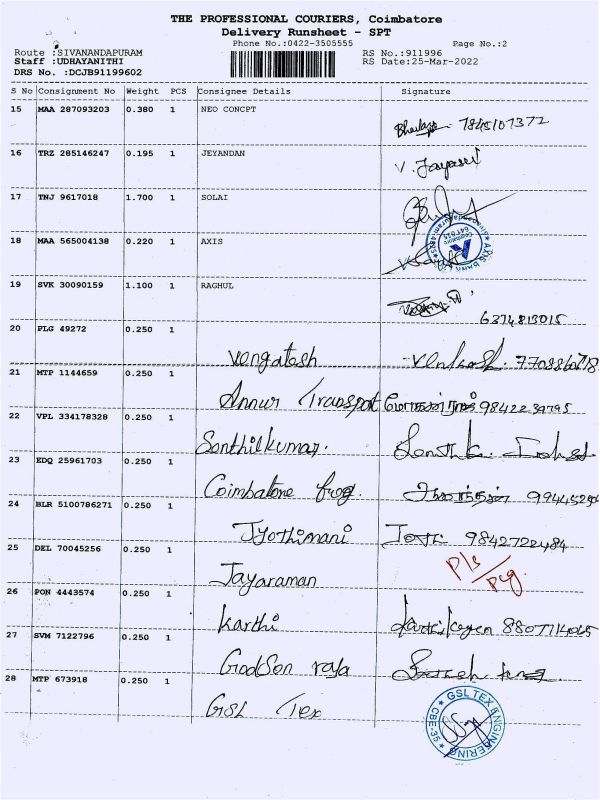 THE PROFESSIONAL COURIERS, Coimbatore
Delivery Runsheet - SPT
Phone No.:0422-3505555 Page No.:2
Route :SIVANANDAPURAM RS No.:911996
Staff :UDHAYANITHI RS Date:25-Mar-2022
DRS No. :DCJB91199602
S No Consignment No Weight PCS Consignee Details Signature
15 MAA 287093203 0.380 1 NEO CONCPT
7845107372
16 TRZ 285146247 0.195 1 JEYANDAN
V. Jayasri
17 TNJ 9617018 1.700 1 SOLAI
18 MAA 565004138 0.220 1 AXIS
AXIS BANK
Coimbatore
19 SVK 30090159 1.100 1 RAGHUL
6374813015
20 PLG 49272 0.250 1
Vengatesh Venkosh.
21 MTP 1144659 0.250 1
Annur Transport 9842239795
22 VPL 334178328 0.250 1
Senthilkumar.
23 EDQ 25961703 0.250 1
Coimbatore
24 BLR 5100786271 0.250 1
Jyothimani 9842722484
25 DEL 70045256 0.250 1
Jayaraman
26 PON 4443574 0.250 1
Karthi 8807714065
27 SVM 7122796 0.250 1
Godson raja
28 MTP 673918 0.250 1
GSL Tex
GSL TEX ENGINEERING
CBE-35